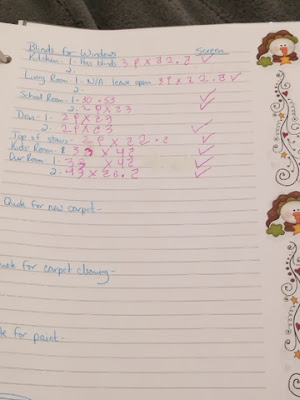 Blinds for Windows Screen
Kitchen: 1. Has blinds 3 ✓
2.
Living Room: 1. N/A leave open ✓
2.
School Room: 1. 30.53 ✓
2. 20 x 33 ✓
Den: 1. 29 x 29
2. 29 x 23 ✓
Top of stairs: 29 x 22.2 ✓
Kids Room: 33 x 42 ✓
Our Room: 1. 33 x 42 ✓
2. 43 x 26.2 ✓
Quote for new carpet -
for carpet cleaning -
for paint -